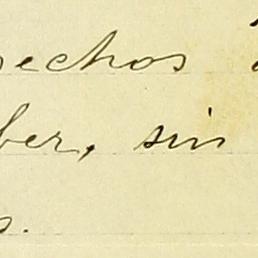 echos
ber, sin
s.